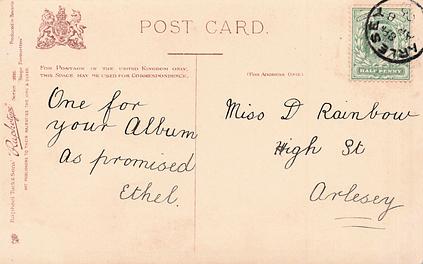 POST CARD.
FOR POSTAGE IN THE UNITED KINGDOM ONLY,
THIS SPACE MAY BE USED FOR CORRESPONDENCE.
(FOR ADDRESS ONLY.)
One for
your Album
As promised
Ethel.
Miss D Rainbow
High St
Arlesey
ARLESEY
HALF PENNY